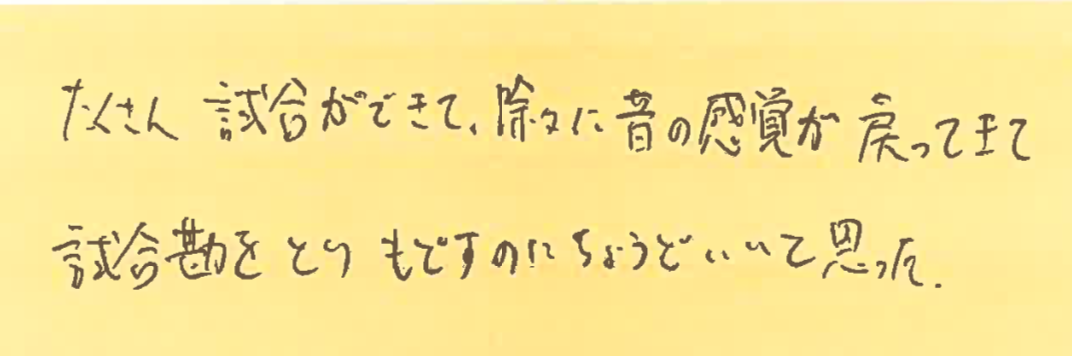 たくさん 試合ができて、除々に昔の感覚が戻ってきて
試合勘をとりもどすのにちょうどいいて思った.